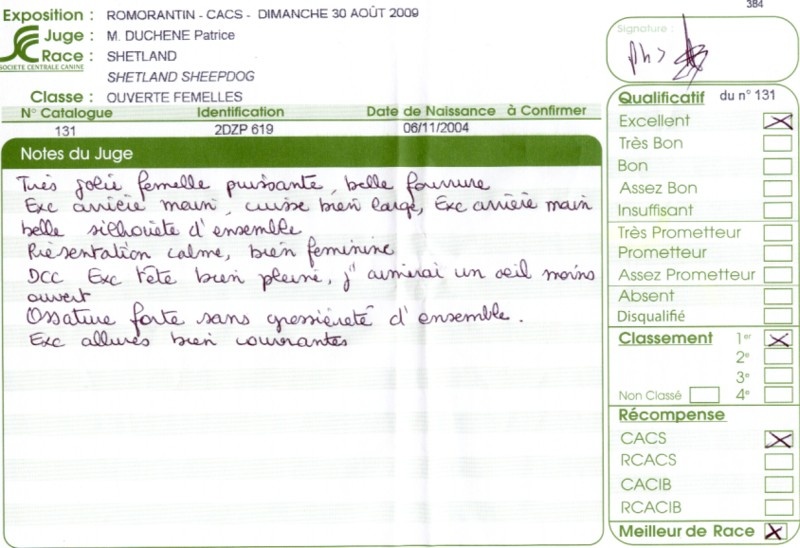 384
Exposition : ROMORANTIN - CACS - DIMANCHE 30 AOÛT 2009
Juge : M. DUCHENE Patrice
Race : SHETLAND
SOCIETE CENTRALE CANINE
SHETLAND SHEEPDOG
Classe : OUVERTE FEMELLES
N° Catalogue Identification Date de Naissance à Confirmer
131 2DZP 619 06/11/2004
Notes du Juge
Très jolie femelle puissante, belle fourrure
Exc arrière main, cuisse bien large, Exc arrière main
belle silhouète d'ensemble
Présentation calme, bien feminine
DCC Exc tête bien pleine, j'aimerai un oeil moins
ouvert
Ossature forte sans grossièreté d'ensemble.
Exc allures bien courantes
Signature :
Qualificatif du n° 131
Excellent X
Très Bon
Bon
Assez Bon
Insuffisant
Très Prometteur
Prometteur
Assez Prometteur
Absent
Disqualifié
Classement 1er X
2e
3e
Non Classé 4e
Récompense
CACS X
RCACS
CACIB
RCACIB
Meilleur de Race X